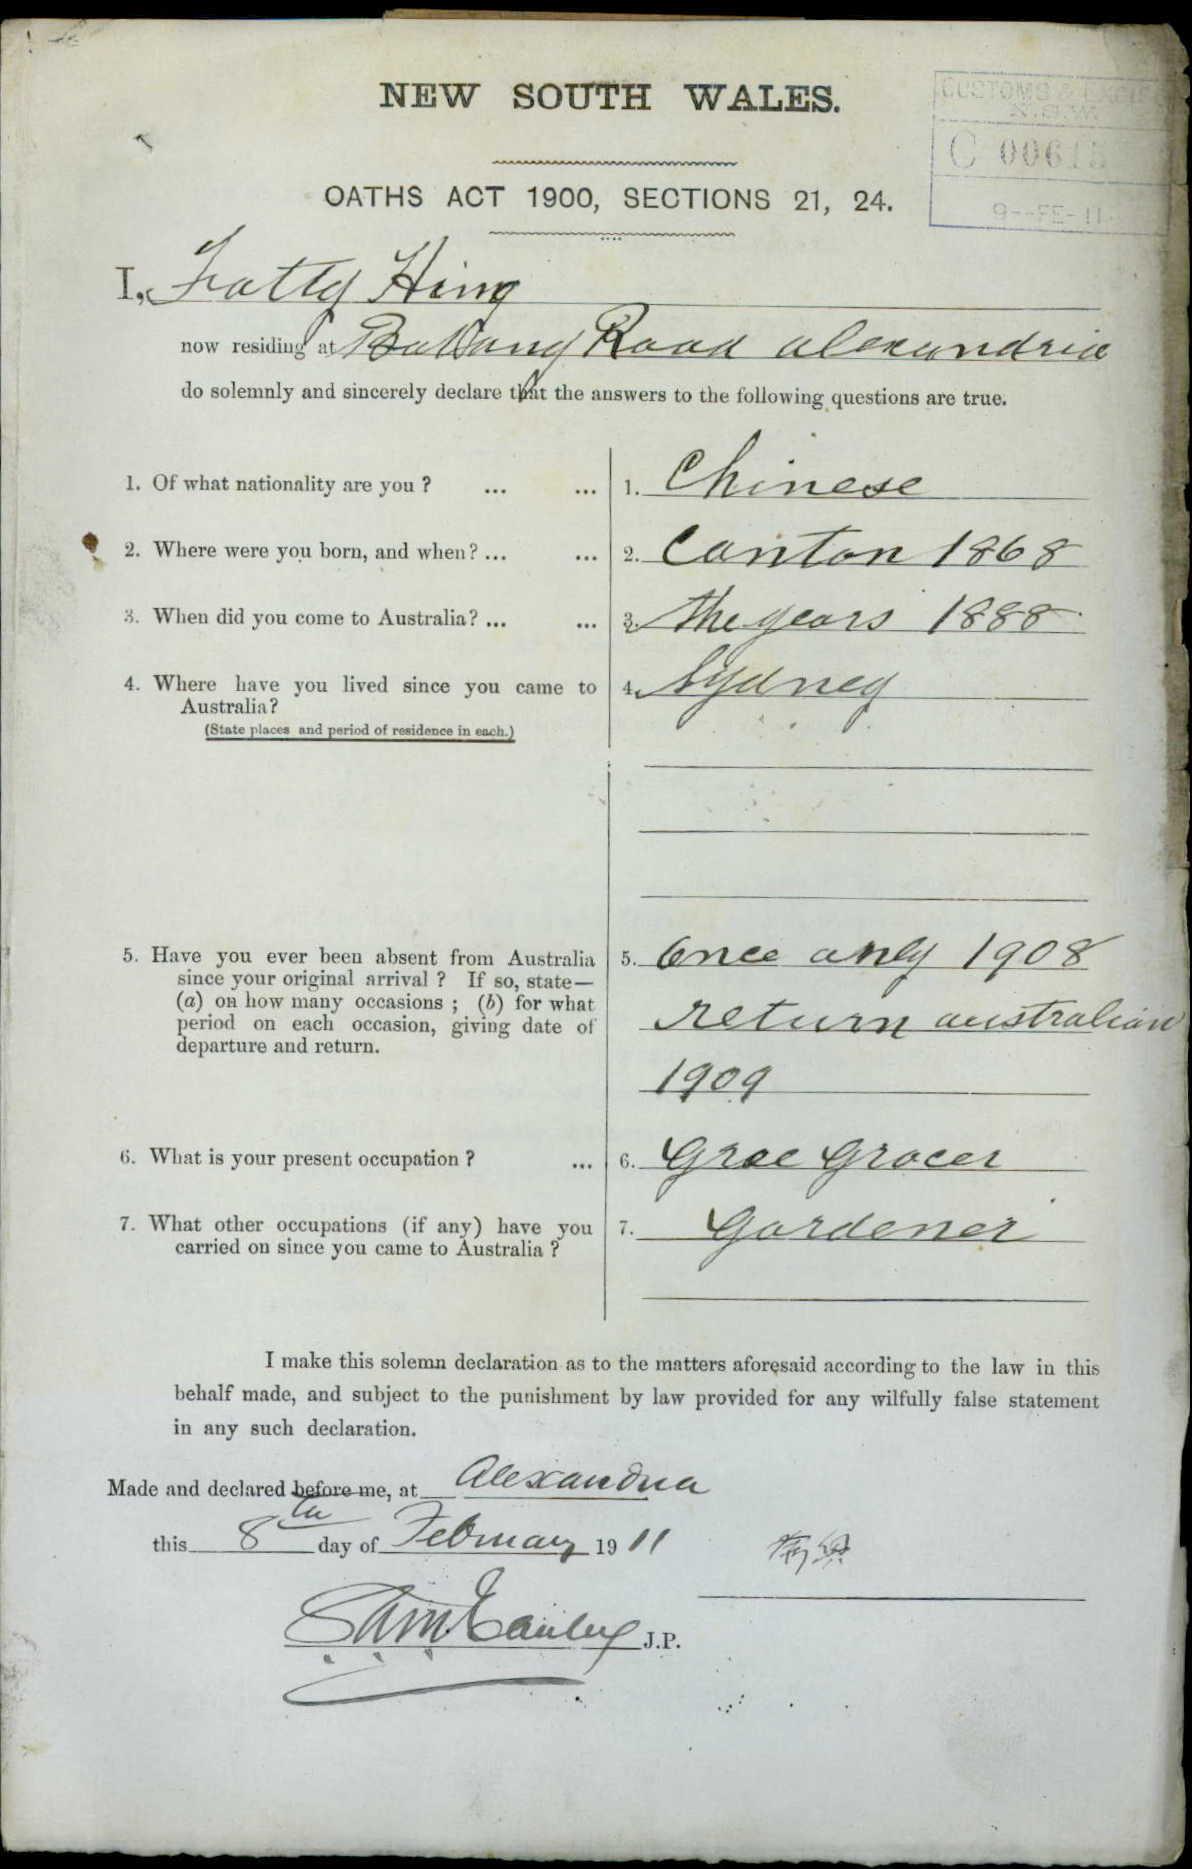 NEW SOUTH WALES.
CUSTOMS & EXCISE
N.S.W.
C 00615
9--FE-11
OATHS ACT 1900, SECTIONS 21, 24.
I, Fatty Hing
now residing at Road alexandria
do solemnly and sincerely declare that the answers to the following questions are true.
1. Of what nationality are you ? ... ... 1. Chinese
2. Where were you born, and when? ... ... 2. Canton 1868
3. When did you come to Australia? ... ... 3. the years 1888
4. Where have you lived since you came to 4. Sydney
Australia?
(State places and period of residence in each.)
5. Have you ever been absent from Australia 5. Once only 1908
since your original arrival ? If so, state—
(a) on how many occasions ; (b) for what return australian
period on each occasion, giving date of
departure and return. 1909
6. What is your present occupation ? ... 6. Groe Grocer
7. What other occupations (if any) have you 7. Gardener
carried on since you came to Australia ?
I make this solemn declaration as to the matters aforesaid according to the law in this
behalf made, and subject to the punishment by law provided for any wilfully false statement
in any such declaration.
Made and declared before me, at Alexandria
this 8th day of February 1911
J.P.